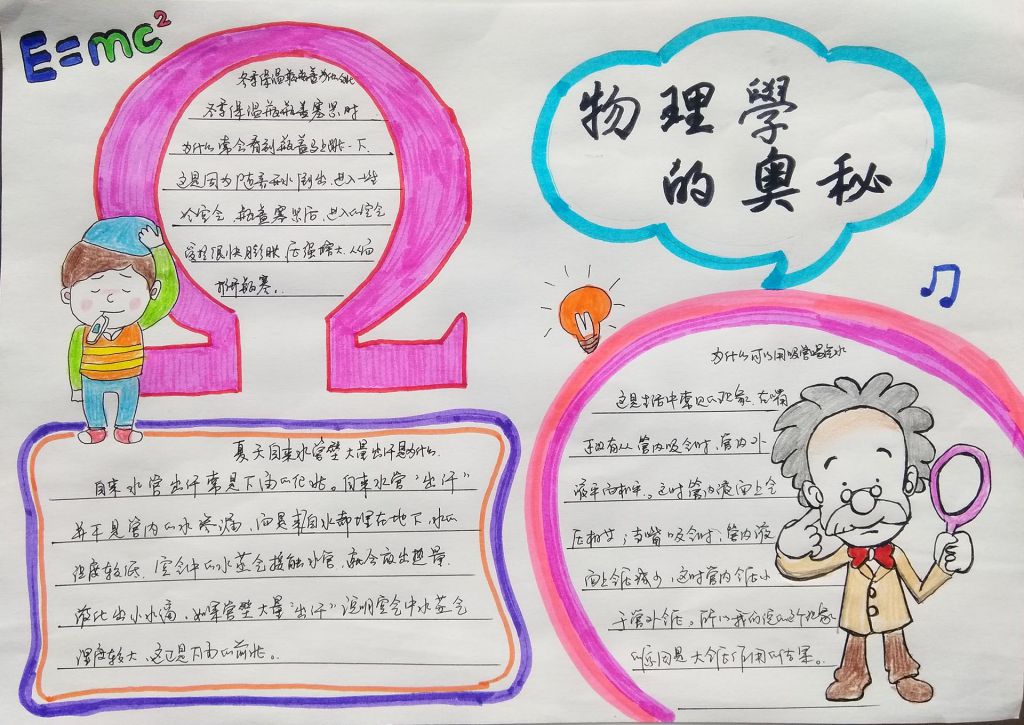 E=mc²
物理學
的奥秘
冬季保温瓶瓶盖为什么跳
冬季保温瓶瓶盖塞紧时
为什么常会看到瓶盖马上跳一下
这是因为随着开水倒出,进入一些
冷空气,瓶盖塞紧后,进入的空气
受热很快膨胀 压强增大,从而
推开瓶塞。
夏天自来水管壁大量出汗是为什么
自来水管出汗常是下雨的征兆。自来水管“出汗”
并不是管内的水渗漏,而是自来水都埋在地下,水的
温度较低,空气中的水蒸气接触水管,就会放出热量
液化出小水滴,如果管壁大量“出汗”说明空气中水蒸气
湿度较大,这正是下雨的前兆。
为什么可以用吸管喝汽水
这是生活中常见的现象,在嘴
没有从管内吸气时,管内外
液面相平。这时管内液面上气
压相等;当嘴吸气时,管内液
面上气压减少,这时管内气压小
于管外气压。所以我们说的这个现象
的原因是大气压作用的结果。